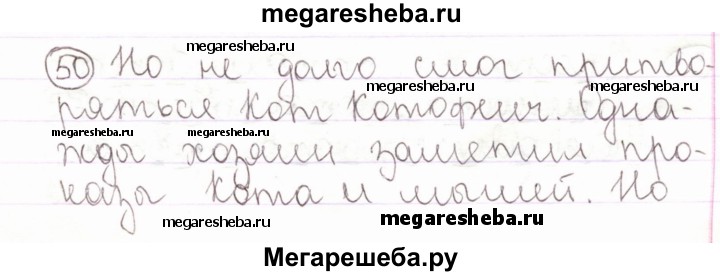 megaresheba.ru
megaresheba.ru megaresheba.ru
50 Но не долго смог притво-
ряться Кот Котофеич. Одна-
megaresheba.ru megaresheba.ru megaresheba.ru
жды хозяин заметил про-
казы Кота и мышей. Но
megaresheba.ru megaresheba.ru
Мегарешеба.ру